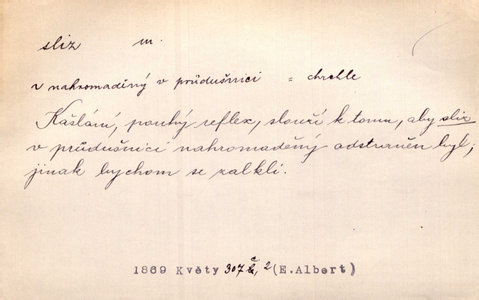 sliz m.
v nahromaděný v průdušnici = chrchle
Kašlání, pouhý reflex, slouží k tomu, aby sliz
v průdušnici nahromaděný odstraněn byl,
jinak bychom se zalkli.
1869 Květy 307 2 (E.Albert)